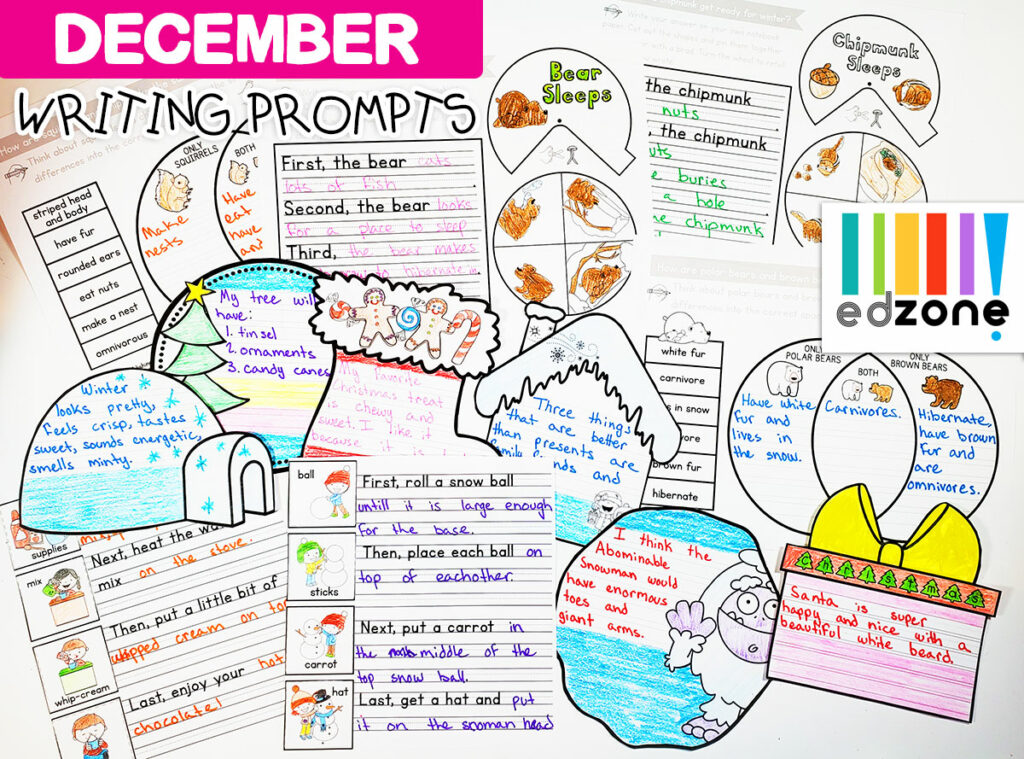 DECEMBER
WRITING PROMPTS
edzone
chipmunk get ready for winter?
Write your answer on your own notebook
paper. Cut out the shapes and pin them together
with a brad. Turn the wheel to retell
Bear
Sleeps
Chipmunk
Sleeps
the chipmunk
nuts
, the chipmunk
e buries
a hole
he chipmunk
How are squ
Think about squ
differences into the corre
striped head
and body
have fur
rounded ears
eat nuts
make a nest
omnivorous
ONLY
SQUIRRELS
Make
nests
BOTH
Have
eat
have
an
First, the bear eats
lots of fish
Second, the bear looks
for a place to sleep
Third, the bear makes
to hibernate in
My tree will
have:
1. tinsel
2. ornaments
3. candy canes
My favorite
Christmas treat
is chewy and
sweet. I like it
because it is
Winter
looks pretty,
feels crisp, tastes
sweet, sounds energetic,
smells minty.
Three things
that are better
than presents are
family, friends and
How are polar bears and
white fur
carnivore
s in snow
vore
brown fur
hibernate
ONLY
POLAR BEARS
Have white
fur and
lives in
the snow.
BOTH
Carnivores.
ONLY
BROWN BEARS
Hibernate,
have brown
fur and
are
omnivores.
supplies
Next, heat the wa
mix on the stove.
mix
Then, put a little bit of
whipped cream on top
whip-cream
Last, enjoy your hot
chocolate!
ball
First, roll a snow ball
untill it is large enough
for the base.
sticks
Then, place each ball on
top of eachother.
carrot
Next, put a carrot in
the middle of the
top snow ball.
hat
Last, get a hat and put
it on the snoman head
I think the
Abominable
Snowman would
have enormous
toes and
giant arms.
Christmas
Santa is super
happy and nice with a
beautiful white beard.